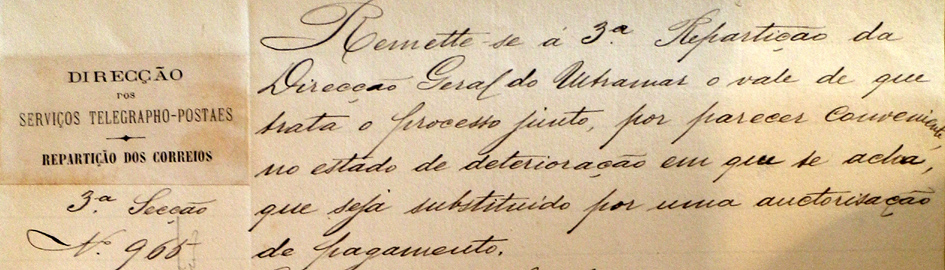 DIRECÇÃO
DOS
SERVIÇOS TELEGRAPHO-POSTAES
REPARTIÇÃO DOS CORREIOS
3.ª Secção
N.º
Remette-se á 3.ª Repartição da
Direcção Geral do Ultramar o vale de que
trata o processo junto, por parecer conveniente,
no estado de deterioração em que se acha,
que seja substituido por uma auctorisação
de pagamento.